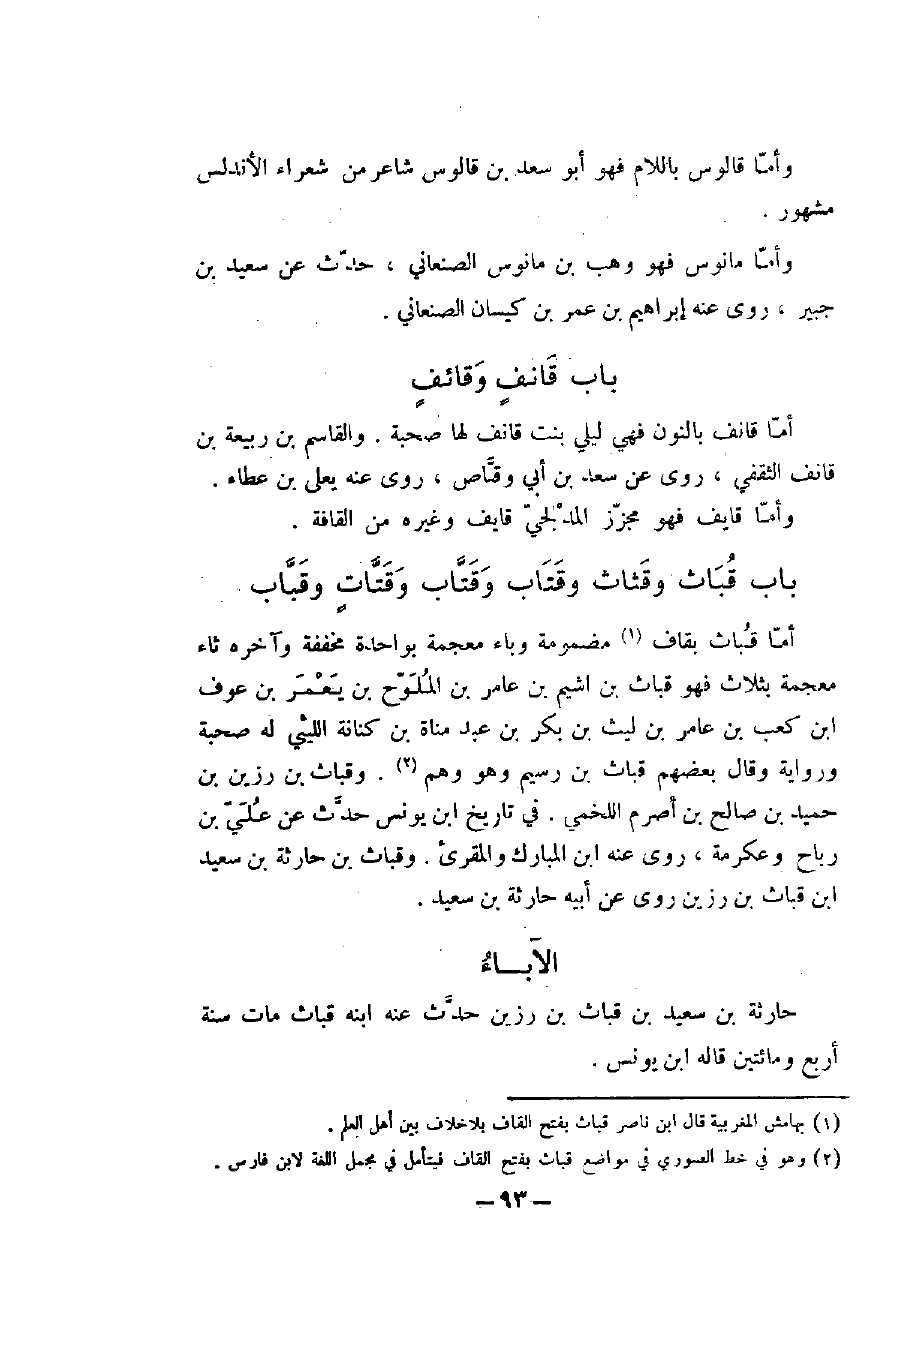 وأمّا قالوس باللام فهو أبو سعد بن قالوس شاعر من شعراء الأندلس
مشهور .
وأمّا مانوس فهو وهب بن مانوس الصنعاني ، حدّث عن سعيد بن
جبير ، روى عنه إبراهيم بن عمر بن كيسان الصنعاني .
باب قَانفٍ وَقائفٍ
أمّا قانف بالنون فهي ليلي بنت قانف لها صحبة . والقاسم بن ربيعة بن
قانف الثقفي ، روى عن سعد بن أبي وقَّاص ، روى عنه يعلى بن عطاء .
وأمّا قايف فهو مجزّز المدْلجيّ قايف وغيره من القافة .
باب قُبَاث وقَثاث وقَتَاب وَقَتَّاب وَقَتَّاتٍ وقَبَّاب
أمّا قُباث بقاف (١) مضمومة وباء معجمة بواحدة مخففة وآخره ثاء
معجمة بثلاث فهو قباث بن اشيم بن عامر بن المُلَوّح بن يَعْمَر بن عوف
ابن كعب بن عامر بن ليث بن بكر بن عبد مناة بن كنانة الليثي له صحبة
ورواية وقال بعضهم قباث بن رسيم وهو وهم (٢) . وقباث بن رزين بن
حميد بن صالح بن أصرم اللخمي . في تاريخ ابن يونس حدَّث عن عُلَيّ بن
رباح وعكرمة ، روى عنه ابن المبارك والمقرئ . وقباث بن حارثة بن سعيد
ابن قباث بن رزين روى عن أبيه حارثة بن سعيد .
الآبـــاءُ
حارثة بن سعيد بن قباث بن رزين حدَّث عنه ابنه قباث مات سنة
أربع ومائتين قاله ابن يونس .
(١) بهامش المغربية قال ابن ناصر قباث بفتح القاف بلاخلاف بين أهل العلم .
(٢) وهو في خط الصوري في مواضع قباث بفتح القاف فيتأمل في مجمل اللغة لابن فارس .
– ٩٣ –